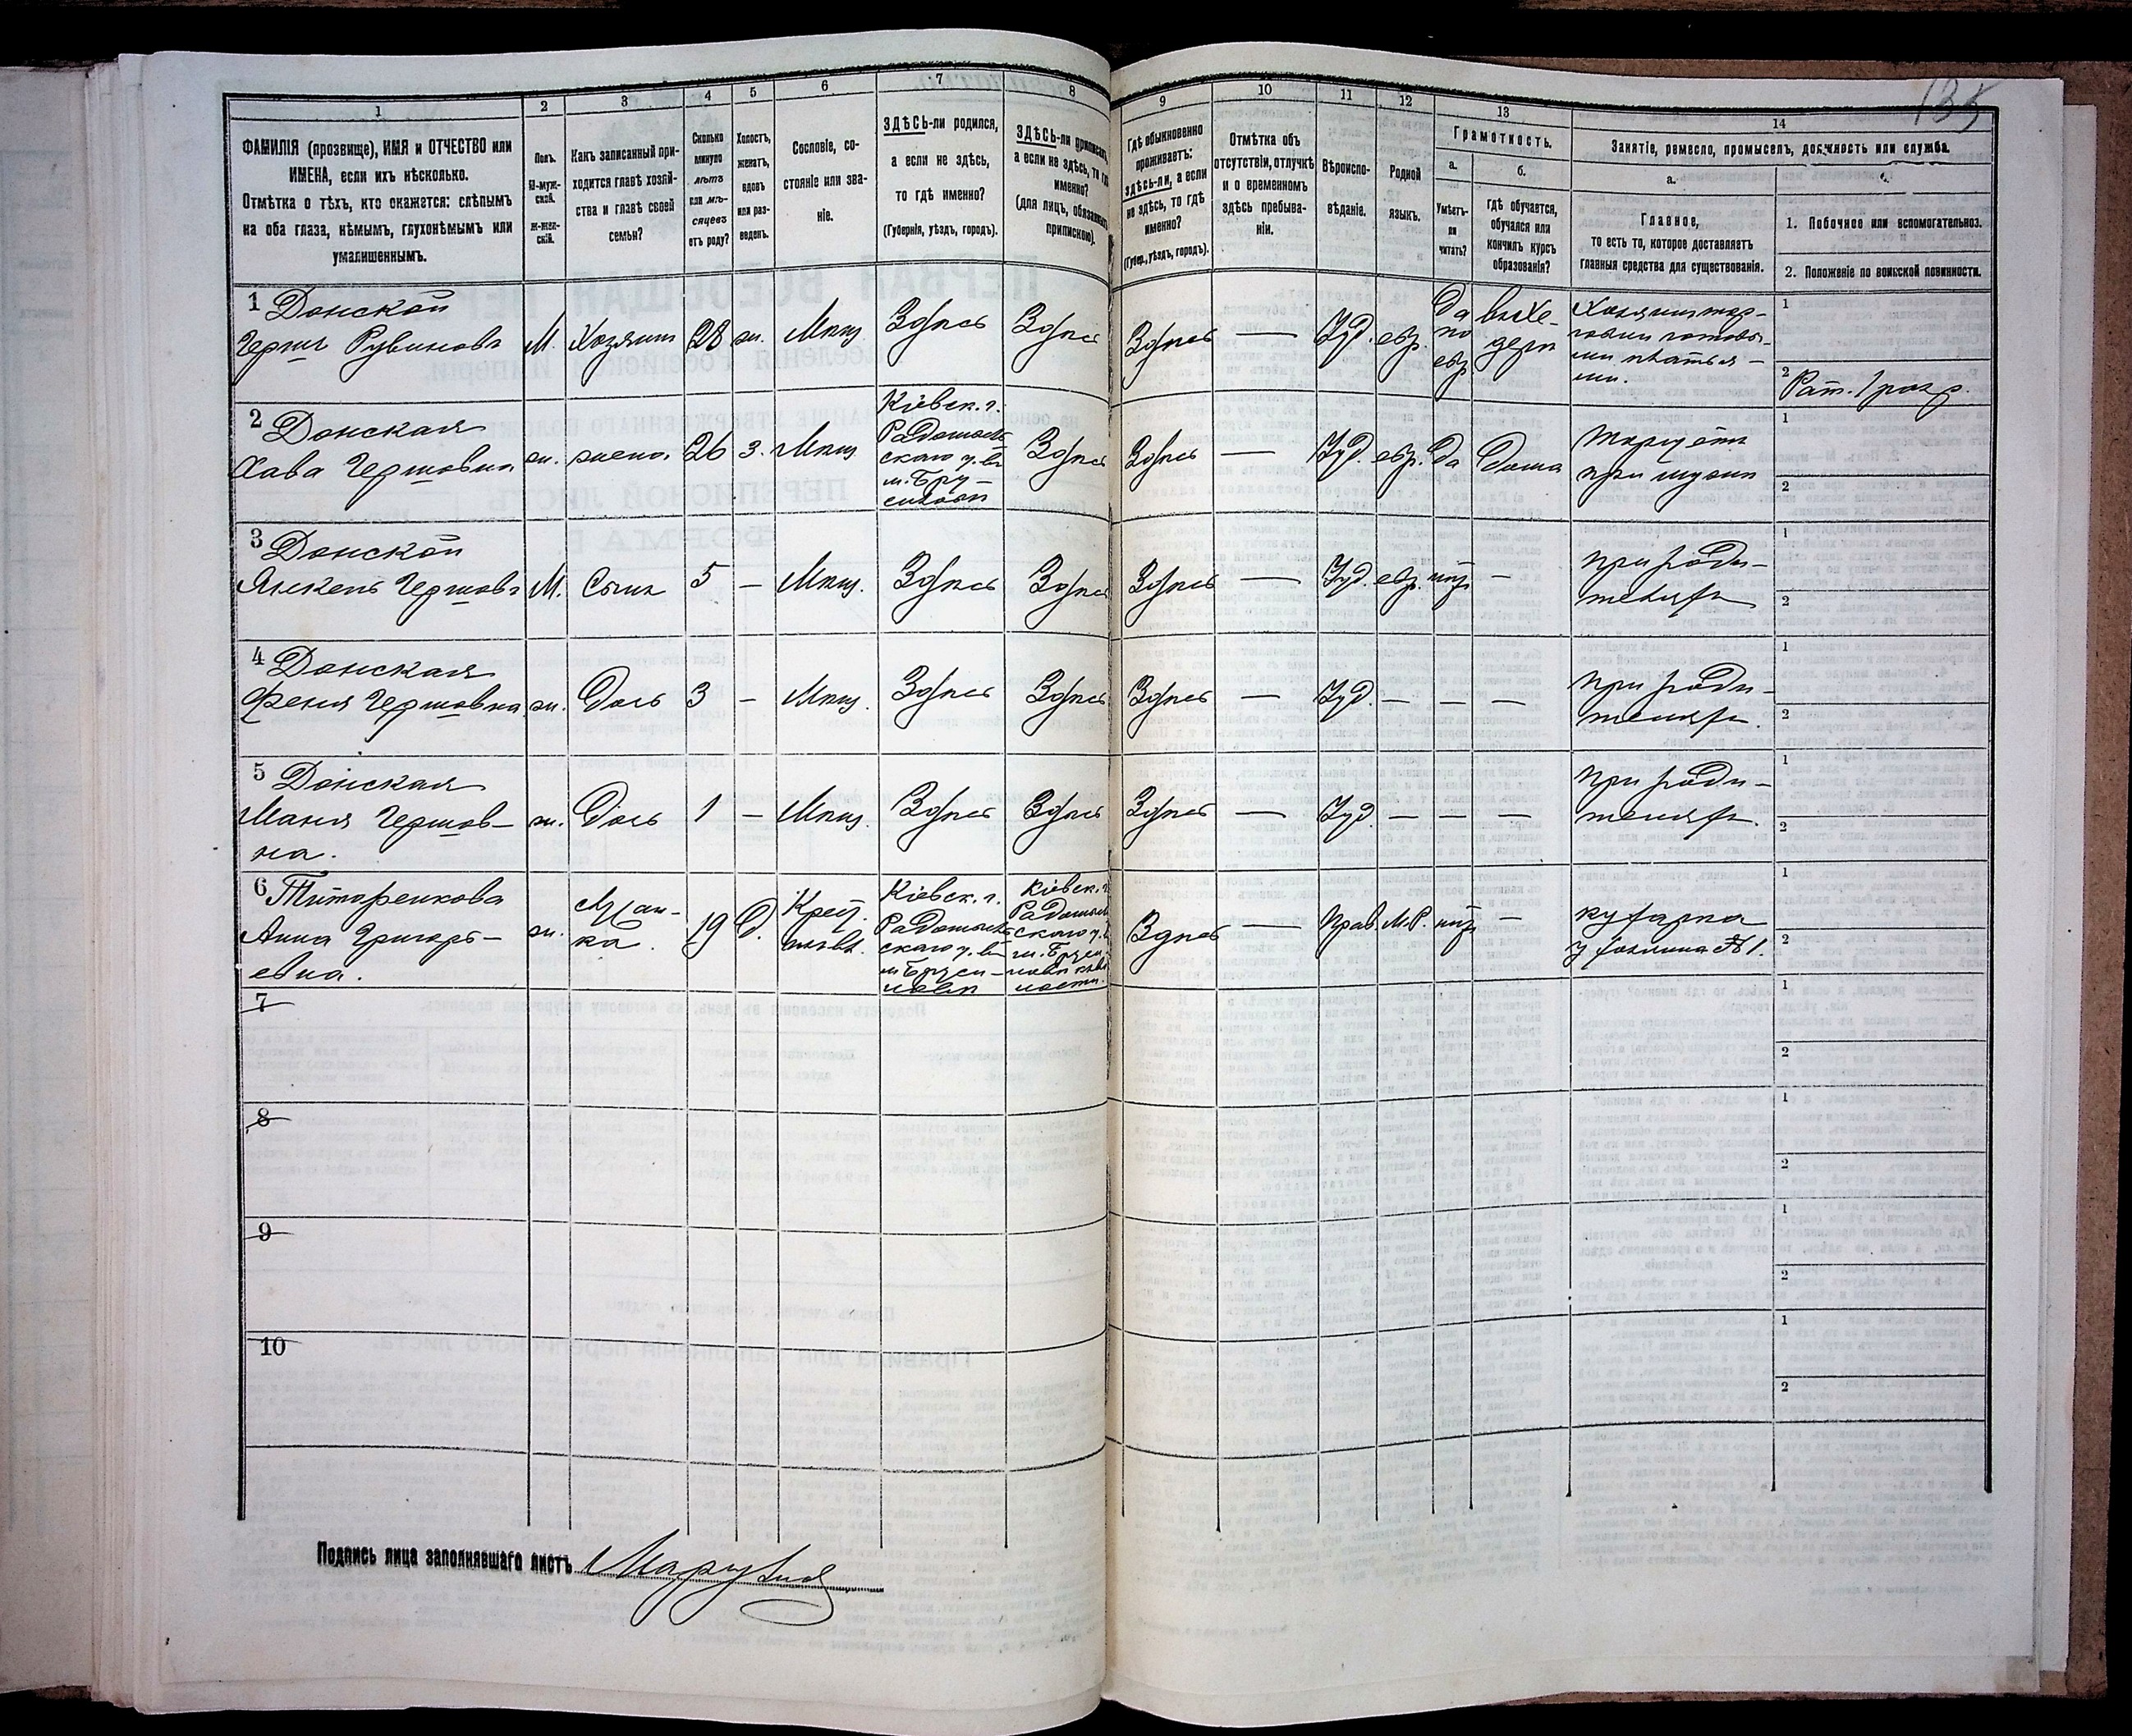 135
1 2 3 4 5 6 7 8 9 10 11 12 13 14
ФАМИЛІЯ (прозвище), ИМЯ и ОТЧЕСТВО или
ИМЕНА, если ихъ нѣсколько.
Отмѣтка о тѣхъ, кто окажется: слѣпымъ
на оба глаза, нѣмымъ, глухонѣмымъ или
умалишеннымъ.
Полъ.
М-муж-
ской.
Ж-жен-
скій.
Какъ записанный при-
ходится главѣ хозяй-
ства и главѣ своей
семьи?
Сколько
минуло
лѣтъ
или мѣ-
сяцевъ
отъ роду?
Холостъ,
женатъ,
вдовъ
или раз-
веденъ.
Сословіе, со-
стояніе или зва-
ніе.
ЗДѢСЬ-ли родился,
а если не здѣсь,
то гдѣ именно?
(Губернія, уѣздъ, городъ).
ЗДѢСЬ-ли приписанъ,
а если не здѣсь, то гдѣ
именно?
(для лицъ, обязанныхъ
припискою).
Гдѣ обыкновенно
проживаетъ:
здѣсь-ли, а если
не здѣсь, то гдѣ
именно?
(Губер., уѣздъ, городъ).
Отмѣтка объ
отсутствіи, отлучкѣ
и о временномъ
здѣсь пребыва-
ніи.
Вѣроиспо-
вѣданіе.
Родной
языкъ.
Грамотность.
а. б.
Умѣетъ-
ли
читать?
гдѣ обучается,
обучался или
кончилъ курсъ
образованія?
Занятіе, ремесло, промыселъ, должность или служба.
а.
Главное,
то есть то, которое доставляетъ
главныя средства для существованія.
1. Побочное или вспомогательное.
2. Положеніе по воинской повинности.
1 Донской
Гершъ Рувиновъ
М. Хозяинъ 28 ж. Мѣщ. Здѣсь Здѣсь Здѣсь — Іуд. евр.
да
по
евр.
въ Хе-
дерѣ
Хозяинъ тор-
говли готовы-
ми платья-
ми.
1
2 Рат. 1 разр.
2 Донская
Хава Гершовна
ж. жена 26 з. Мѣщ.
Кіевск. г.
Радомысль-
скаго у. въ
м. Бру-
силовѣ
Здѣсь Здѣсь — Іуд. евр. да дома
при мужѣ
1
2
3 Донской
Янкель Гершовъ
М. Сынъ 5 — Мѣщ. Здѣсь Здѣсь Здѣсь — Іуд. евр. нѣтъ —
при роди-
теляхъ
1
2
4 Донская
Феня Гершовна
ж. Дочь 3 — Мѣщ. Здѣсь Здѣсь Здѣсь — Іуд. — — —
при роди-
теляхъ.
1
2
5 Донская
Маня Гершов-
на.
ж. Дочь 1 — Мѣщ. Здѣсь Здѣсь Здѣсь — Іуд. — — —
при роди-
теляхъ.
1
2
6 Титаренкова
Анна Григорь-
евна.
ж. 19 Д.
Кіевск. г.
Радомысль-
скаго у. въ
м. Бруси-
ловѣ
Кіевск. г.
Радомысль-
скаго у.
м. Бруси-
Здѣсь — Прав. М.Р. нѣтъ —
кухарка
у хозяина № 1.
1
2
7 1
2
8 1
2
9 1
2
10 1
2
Подпись лица заполнявшаго листъ